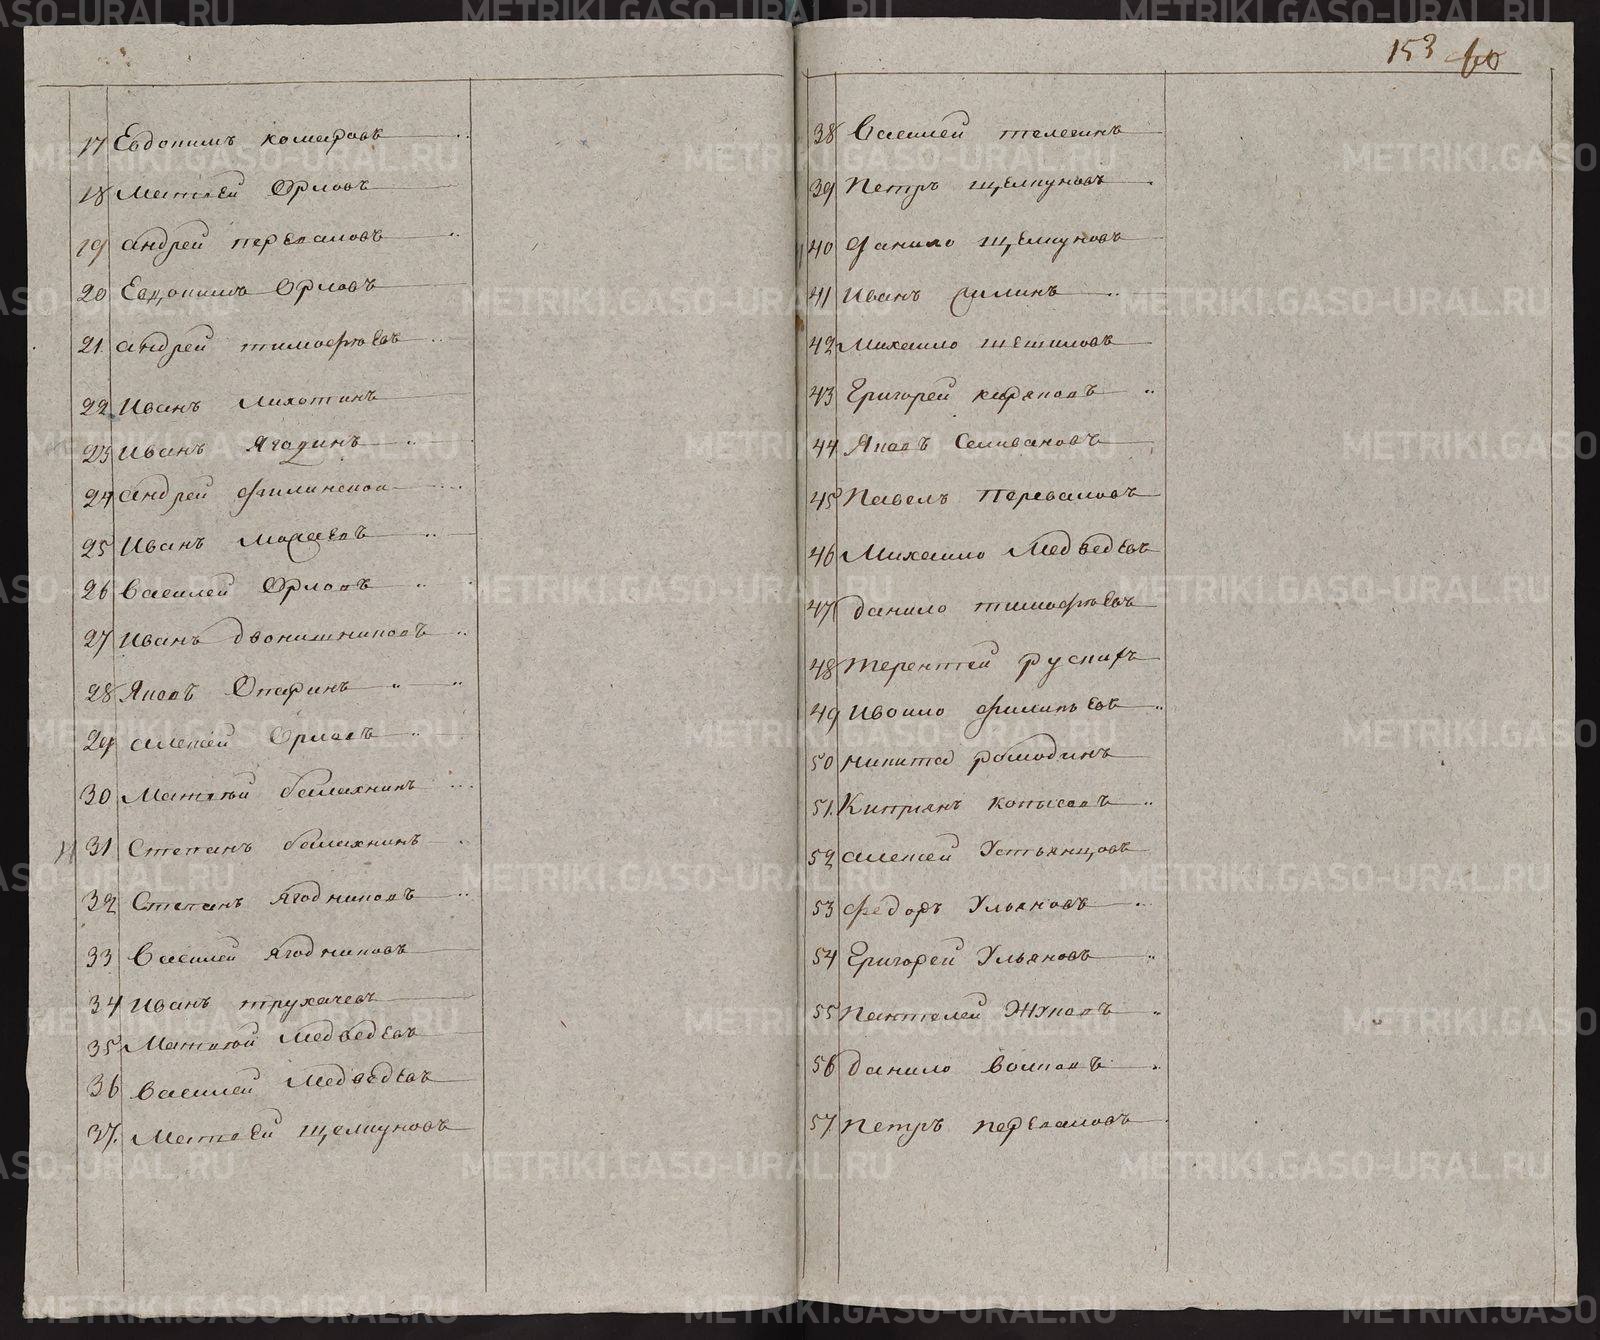 17 Евдокимъ комаровъ
18 Матвей Орловъ
19 андрей переваловъ
20 Евдокимъ Орловъ
21. андрей тимофѣевъ
22 Иванъ Лихотинъ
23 Иванъ Ягодинъ
24 андрей филинской
25 Иванъ
26 Василей Орловъ
27 Иванъ дворишниковъ
28 Яковъ Опаринъ
29 алексей Орловъ
30 Матвей балахнинъ
31 Степанъ балахнинъ
32 Степанъ Ягодниковъ
33 Василей Ягодниковъ
34 Иванъ трухачевъ
35 Матвей Медведевъ
36 Василей Медведевъ
37. Матвей щелкуновъ
153
38 Василей телегинъ
39 Петръ щелкуновъ
40 данило щелкуновъ
41 Иванъ силинъ
42 Михаило шешиловъ
43 Григорей киряковъ
44 Яковъ Селивановъ
45 Павелъ Переваловъ
46 Михаило Медведевъ
47 данило тимофѣевъ
48 терентей руский
49 Ивоило филипьевъ
50 никита ромодинъ
51. Киприянъ копысовъ
52 алексей Устьянцовъ
53 федоръ Ульяновъ
54 Григорей Ульяновъ
55 Пантелей Жуковъ
56 данило волковъ
57 Петръ переваловъ
METRIKI.GASO-URAL.RU